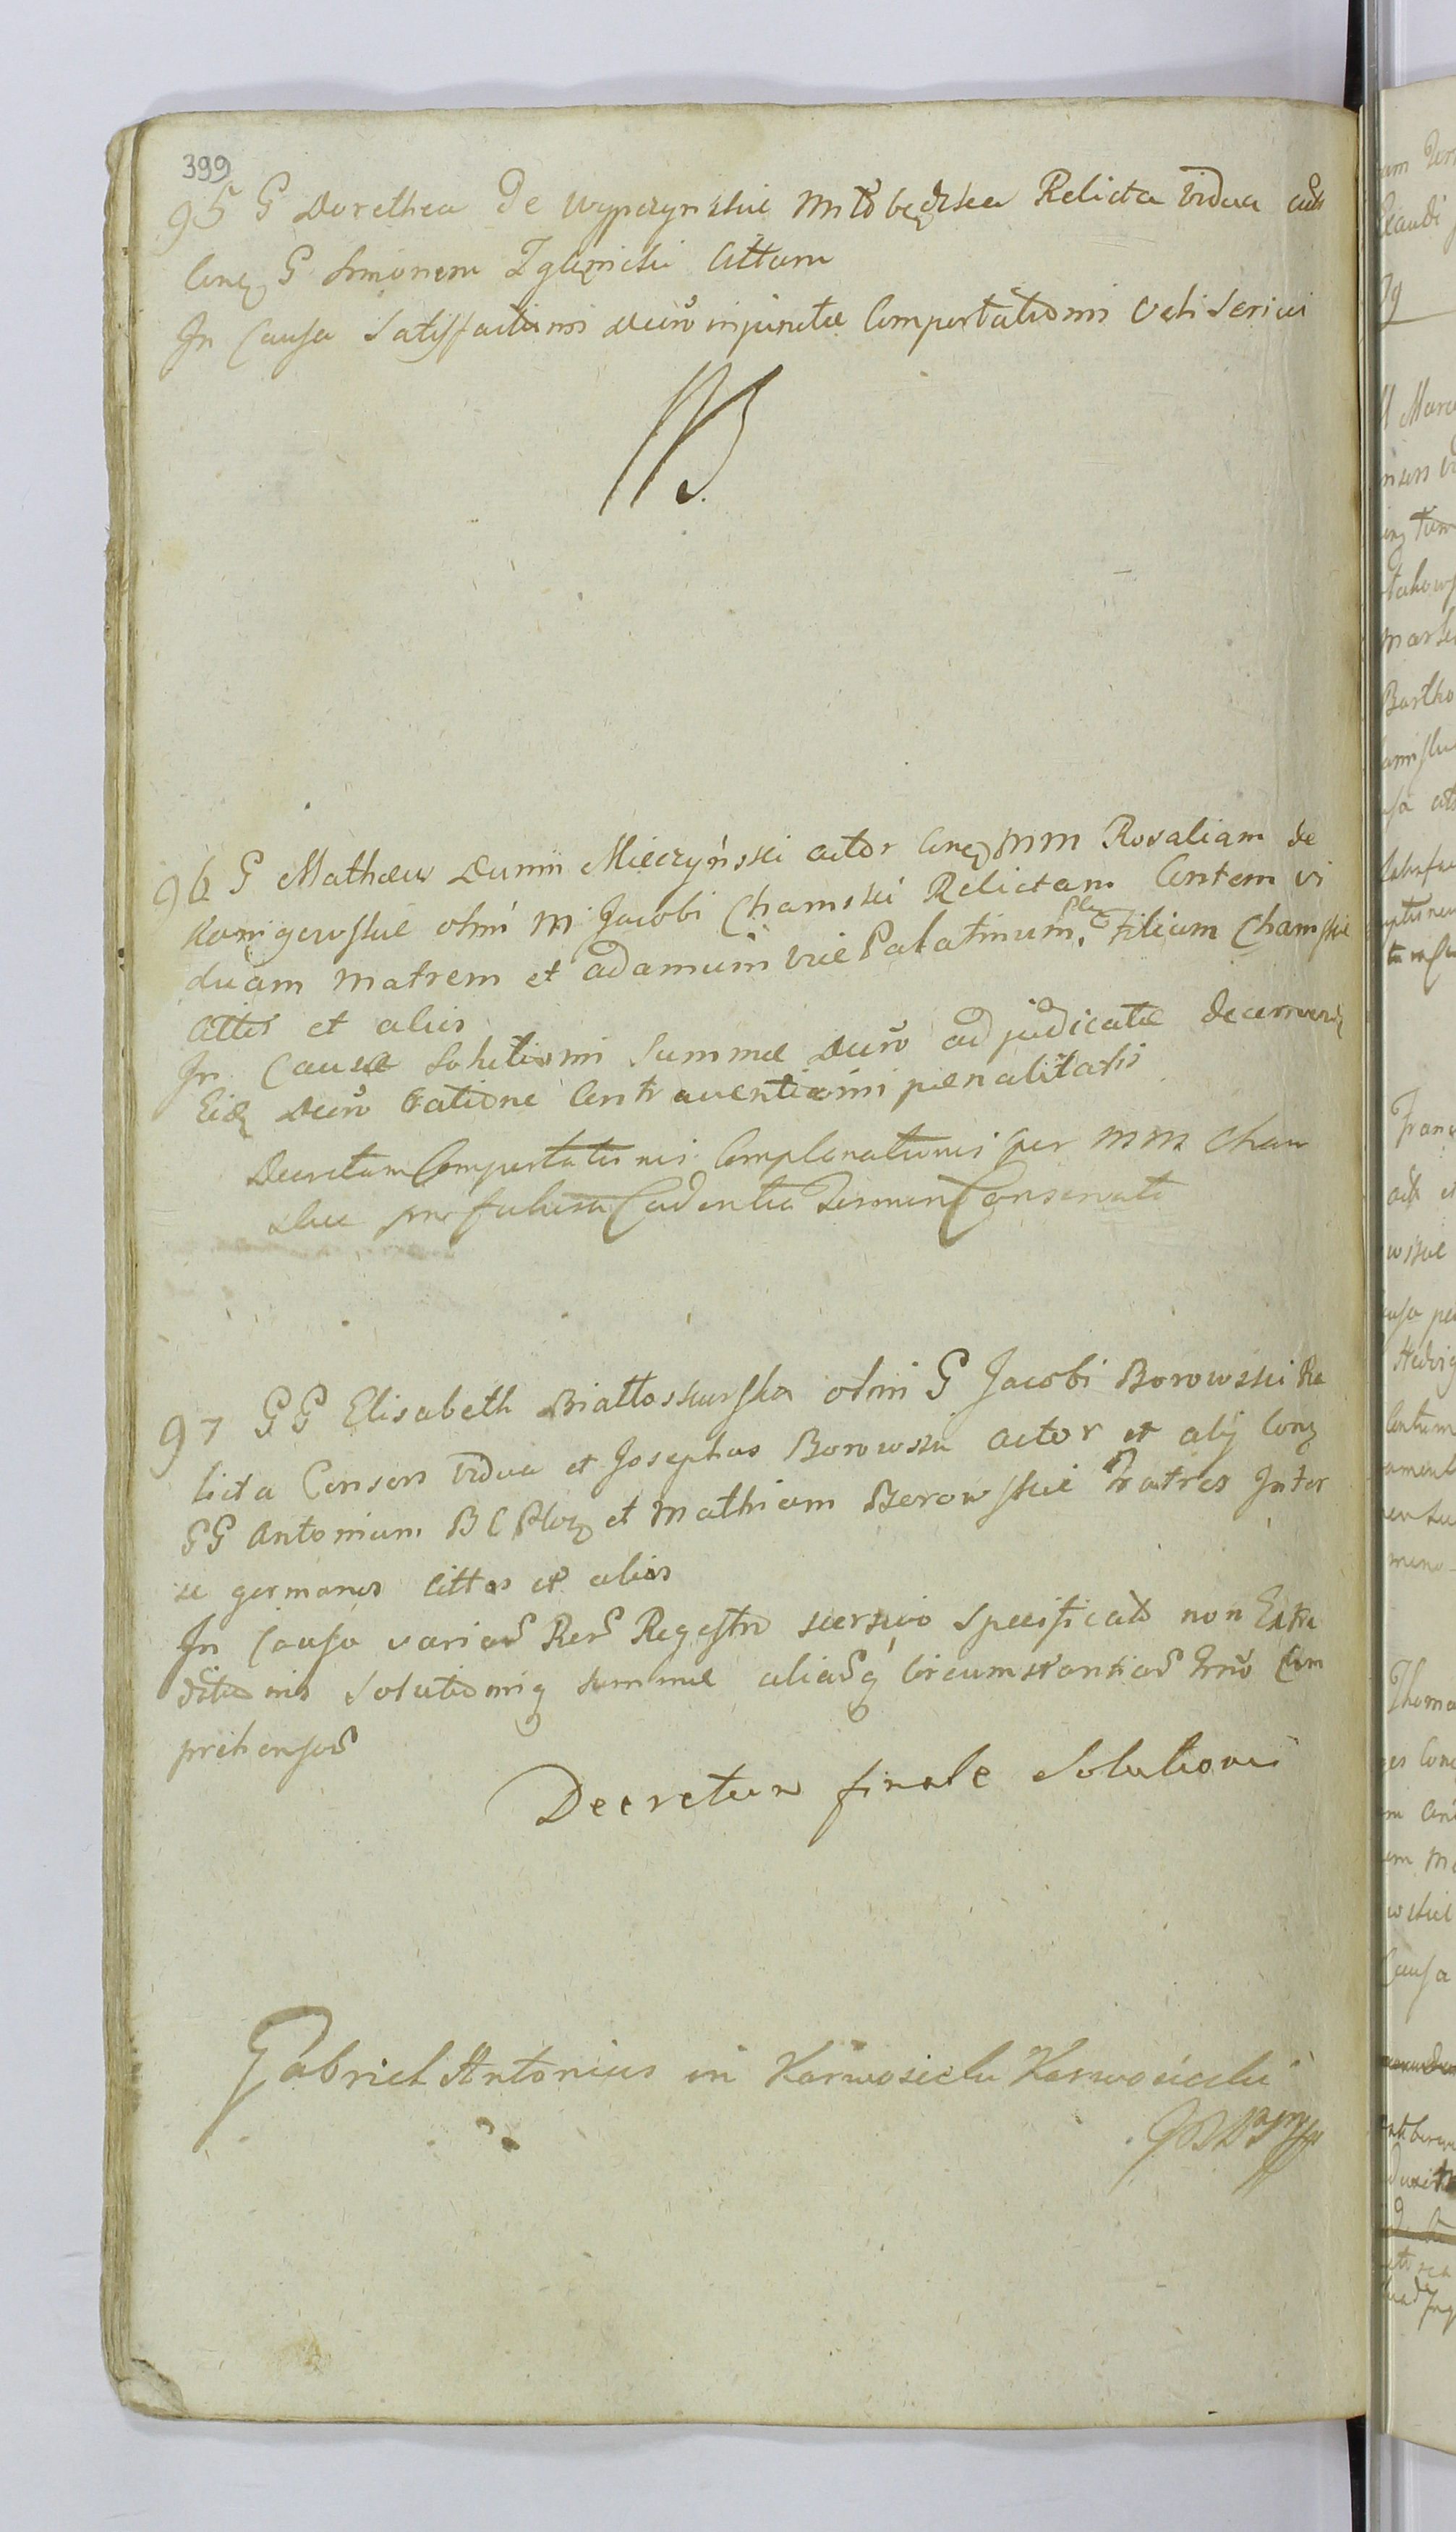 399
95 G Dorothea De Wypczynskie Miłobędzka Relicta vidua act
Conq G Simonem Zglenicki Cittum
In Causa Satisfactionis Decro injunctæ Comportationis Oeti Serici
96 G Mathæus Dunin Mieczyński actor Conq MM Rosaliam de
Konigowskie olim M Jacobi Chamski Relictam Contem vi
duam Matrem et adamum vice Palatinum Plo Filium Chamskie
Cittos et alios
In Causa Solutionis Summæ Decro adjudicatæ
Eid Decro ratione Contraventionis pœnalitatis
Decretum Comportationis Complanationis per MM Cham
skie pro futura Cadentia Termino Conservato
97 GG Elisabeth Białłoskurska olim G Jacobi Borowski Re
licta Consors vidua et Josephus Borowski actor et alij Conq
GG Antonium B C Ploc et Mathiam Borowskie Fratres Inter
se germanos Cittos et alios
In Causa variar Rer Regestro seorsivo Specificato non Extra
ditionis Solutionis q summæ aliarq Circumstantiar Trno Com
prehensar
Decretum finale Solutionis
Gabriel Antonius in Karwosiecki Karwosiecki